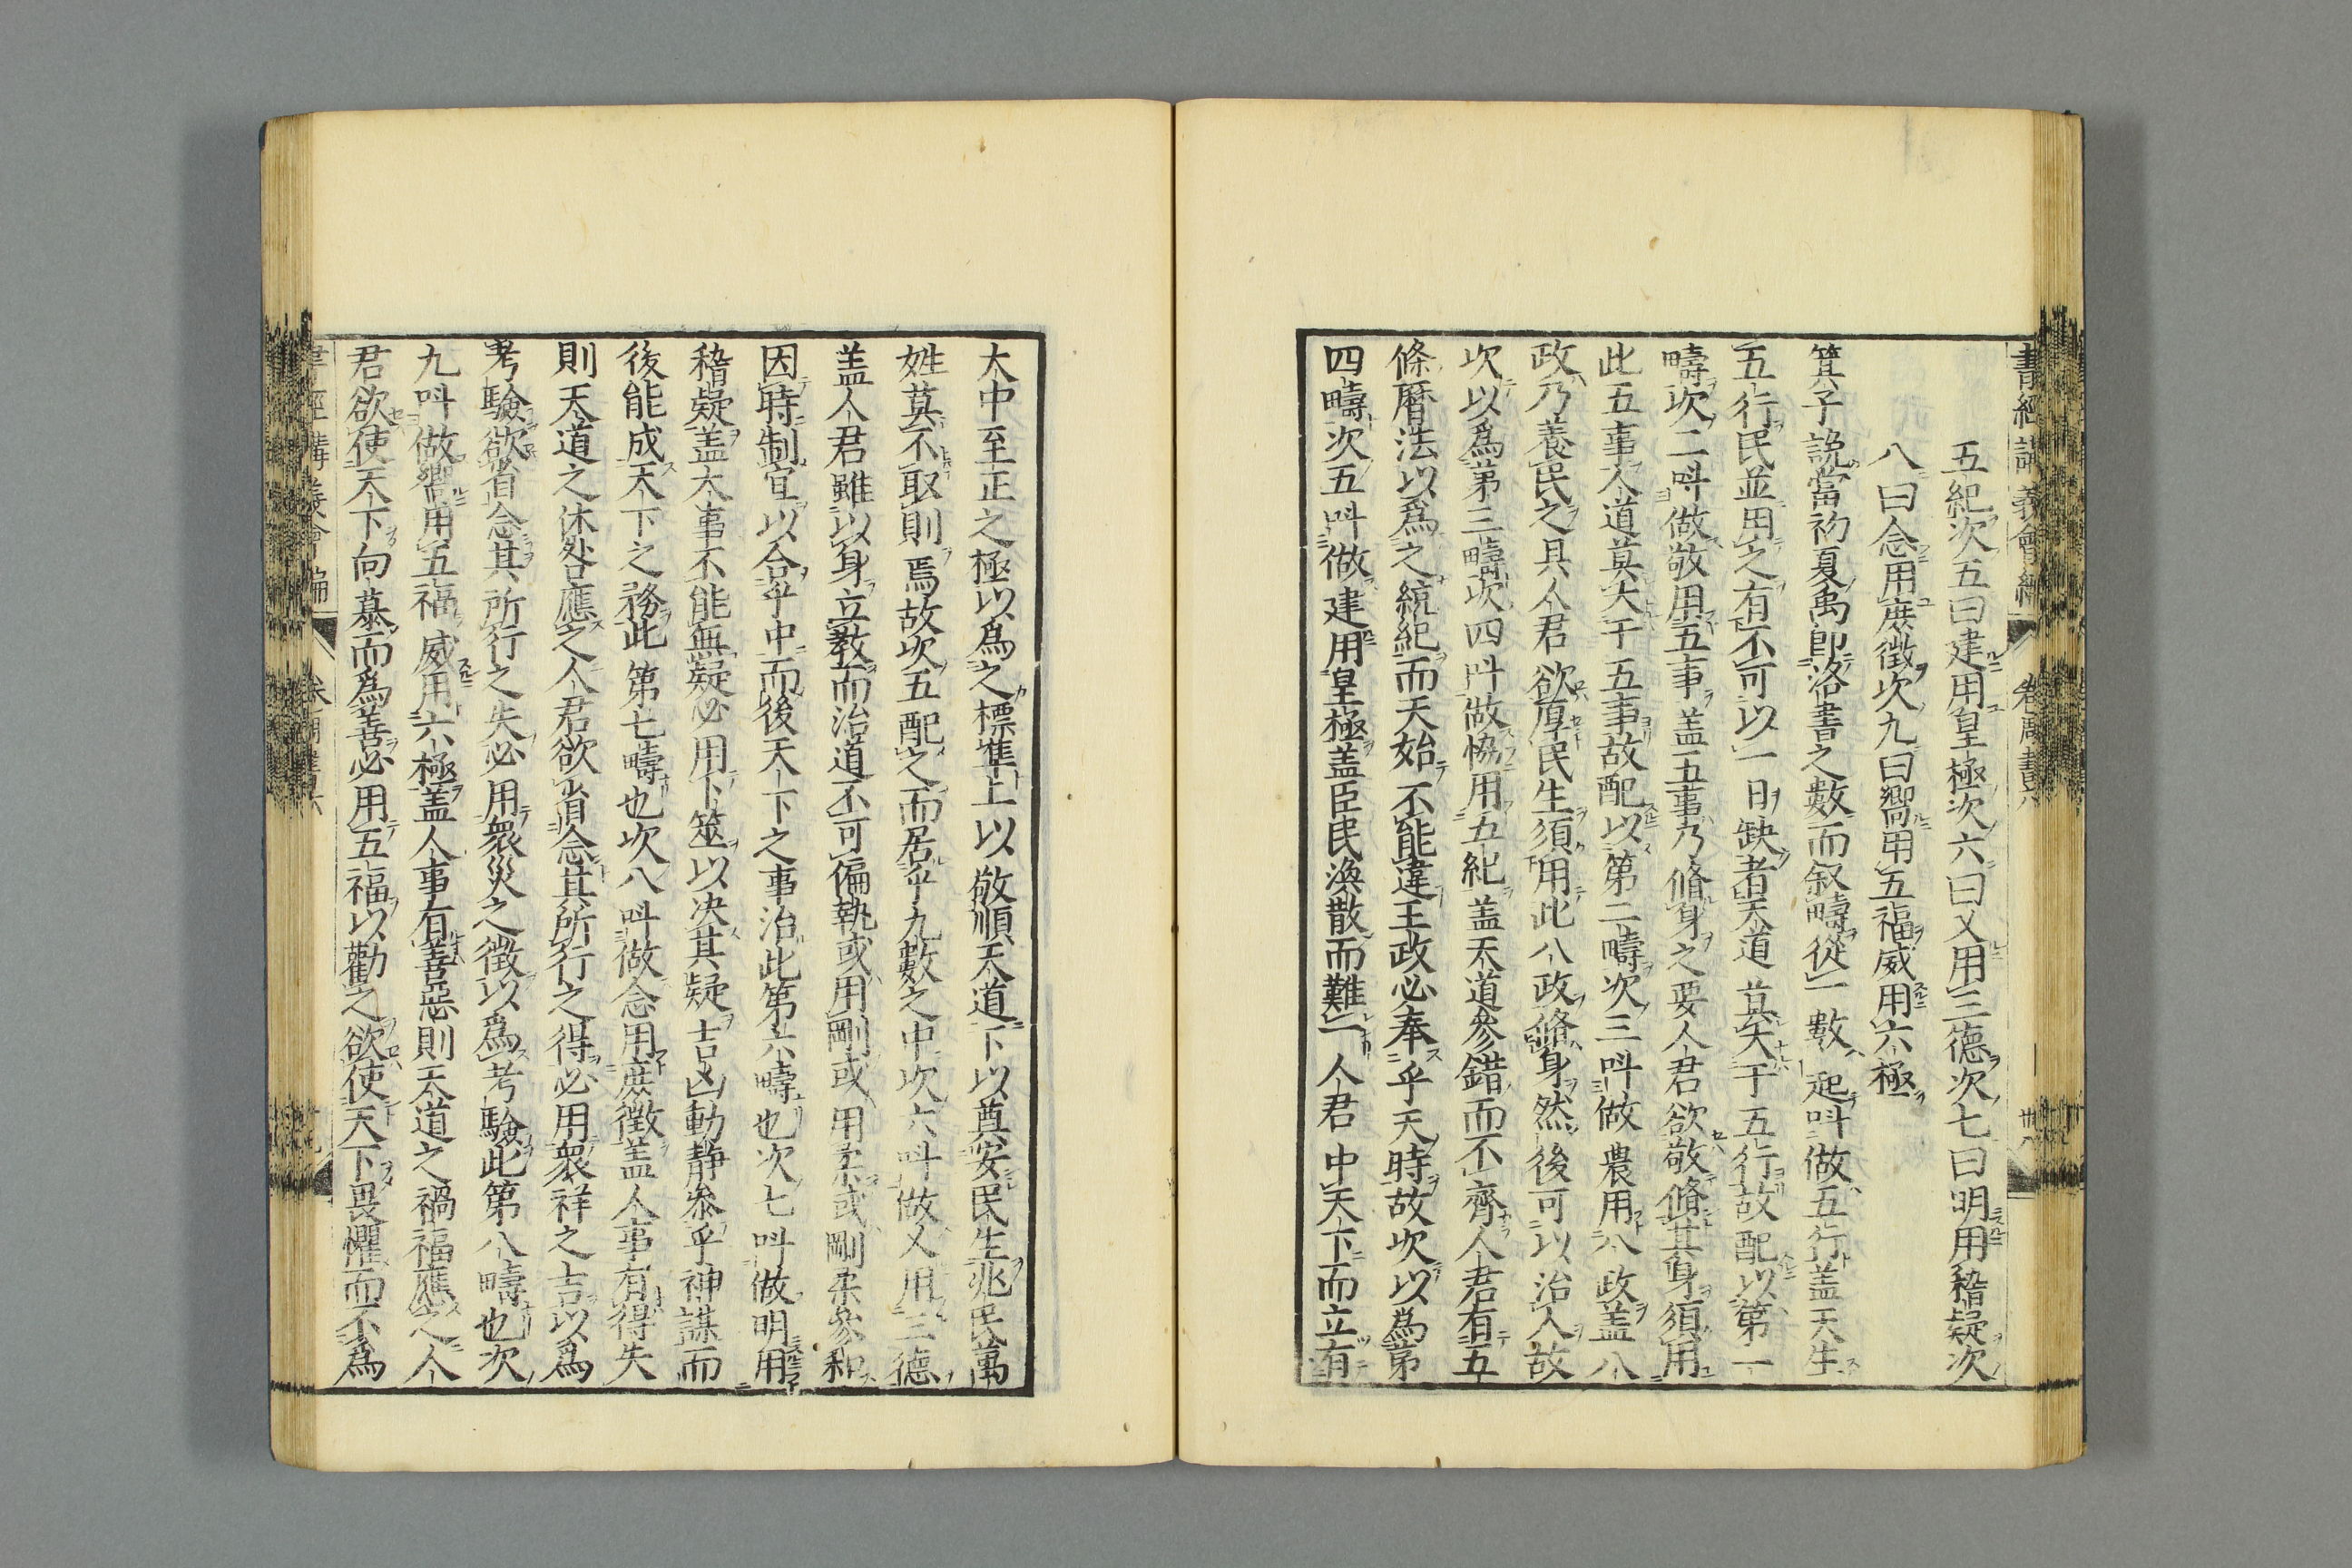 書經講義會編 卷 周書六 卅八
五紀次五曰建用皇極次六曰乂用三德次七曰明用稽疑次
八曰念用庶徵次九曰嚮用五福威用六極
箕子說當初夏禹卽洛書之數而叙疇從一數起呌做五行盖天生
五行民並用之有不可以一日缺者天道莫大于五行故配以第一
疇次二呌做敬用五事盖五事乃脩身之要人君欲敬脩其身須用
此五事人道莫大于五事故配以第二疇次三呌做農用八政盖八
政乃養民之具人君欲厚民生須用此八政脩身然後可以治人故
次以爲第三疇次四呌做恊用五紀盖天道參錯而不齊人君有五
條曆法以爲之統紀而天始不能違王政必奉乎天時故次以爲第
四疇次五呌做建用皇極盖臣民渙散而難一人君中天下而立有
大中至正之極以爲之標準上以敬順天道下以奠安民生兆民萬
姓莫不取則焉故次五配之而居乎九數之中次六呌做乂用三德
盖人君雖以身立教而治道不可偏執或用剛或用柔或剛柔參和
因時制宜以合乎中而後天下之事治此第六疇也次七呌做明用
稽疑盖大事不能無疑必用卜筮以決其疑吉凶動靜叅乎神謀而
後能成天下之務此第七疇也次八呌做念用庶徵盖人事有得失
則天道之休咎應之人君欲省念其所行之得必用衆祥之吉以爲
考驗欲省念其所行之失必用衆災之徵以爲考驗此第八疇也次
九呌做嚮用五福威用六極盖人事有善惡則天道之禍福應之人
君欲使天下向慕而爲善必用五福以勸之欲使天下畏懼而不爲